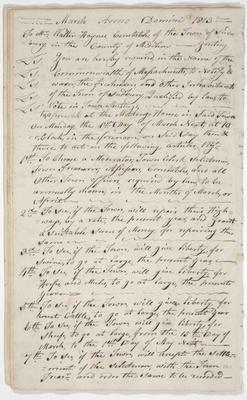 March Anno Domini 1813
To Mr. Walter Haynes Constable of the Town of Sud-
bury in the County of Middlesex Greeting
You are hereby required in the Name of the
Commonwealth of Massachusetts, to Notify &
warn the freeholders and other Inhabitants
of the Town of Sudbury, Qualified by Law to
Vote in Town Meeting,
to assemble at the Meeting House in Said Town
on Monday, the 1st Day of March Next at 10
o'Clock in the forenoon on Said Day then &
there to act in the following articles, (Viz)
1st To Choose a Moderator, Town Clerk, Selectmen,
Town Treasurer, Assessors, Constables and all
other Town officers required by Law to be
annually chosen in The Months of March, or
April
2nd To See if the Town will repair their High-
ways by a rate the present year and grant
a Suitable Sum of Money for repairing the
Same
3rd To See, if the Town will give liberty for
Swine, to go at large, the present year
4th To See, if the Town will give liberty, for
Horses and Mules, to go at large, the present
5th To See if the Town will give liberty for
Neat Cattle, to go at large, the present year
6th To See if the Town, will give liberty for
Sheep, to go at large from the 15th Day of
March, to the 1st Day of May Next
7th To See, if the Town, will accept the Settle-
ment of the Selectmen, with the Town
Treasr. and order the Same to be recorded